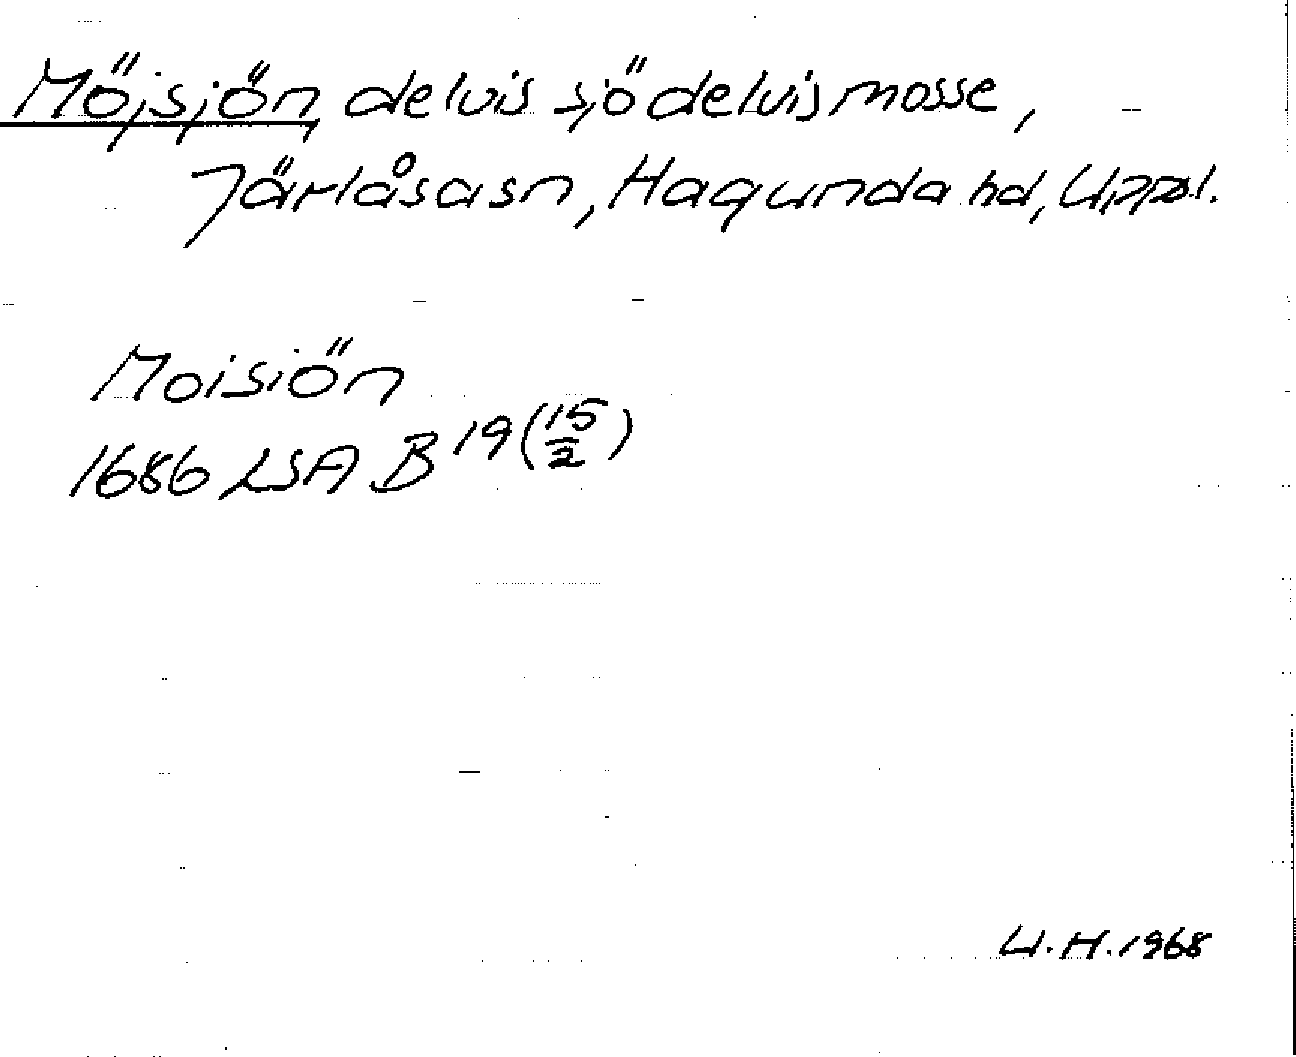 Möjsjön, delvis sjö delvis mosse,
Järlåsa sn, Hagunda hd, Uppl.
Moisiön
1686 LSA B 19 (15/2)
U.H. 1968